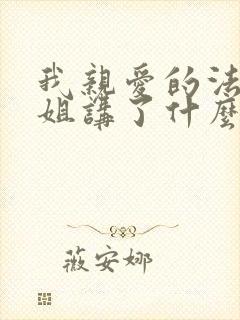 我親愛的法
姐講了什麼
薇安娜